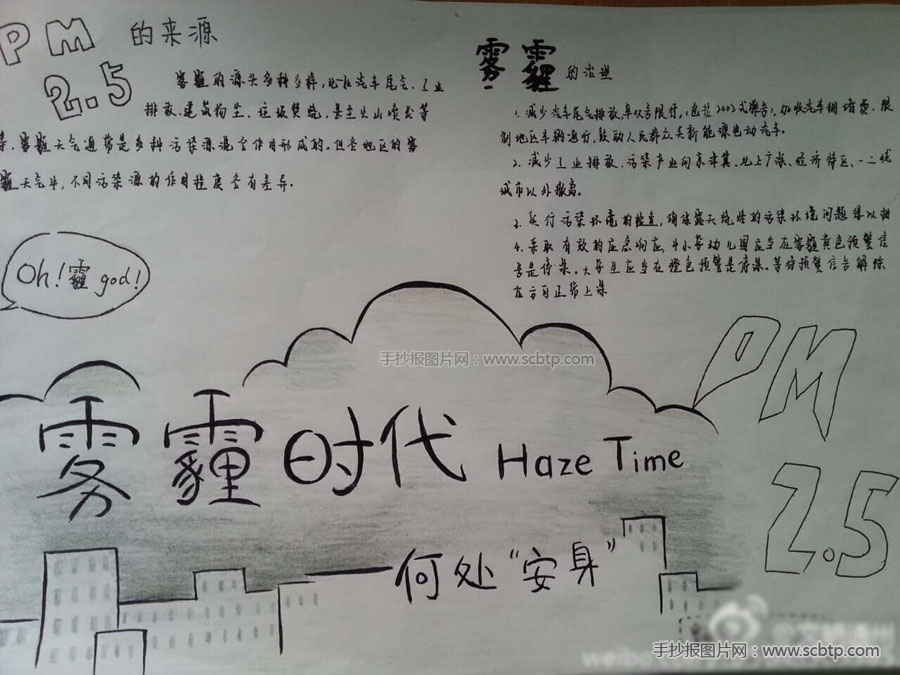 PM 的来源
2.5
雾霾的源头多种多样，比如汽车尾气、工业
排放、建筑扬尘、垃圾焚烧，甚至火山喷发等
等，雾霾天气通常是多种污染源混合作用形成的。但各地区的雾
霾天气中，不同污染源的作用程度各有差异。
Oh！霾 god！
雾霾的治理
1.减少汽车尾气排放，单双号限行，加收汽车拥堵费，限
制地区车辆通行，鼓动人民群众买新能源电动汽车。
2.减少工业排放。污染产业向京津冀、北上广深、经济特区、一二线
城市以外撤离。
污染环境的检查，露天烧烤的污染环境问题得以
4.采取有效的应急响应，中小学幼儿园应当在雾霾黄色预警信
号是停课。大学生应当在橙色预警是停课。等待预警信号解除
后方可正常上课
手抄报图片网：www.scbtp.com
PM
2.5
雾霾时代 Haze Time
——何处“安身”
手抄报图片网：www.scbtp.com